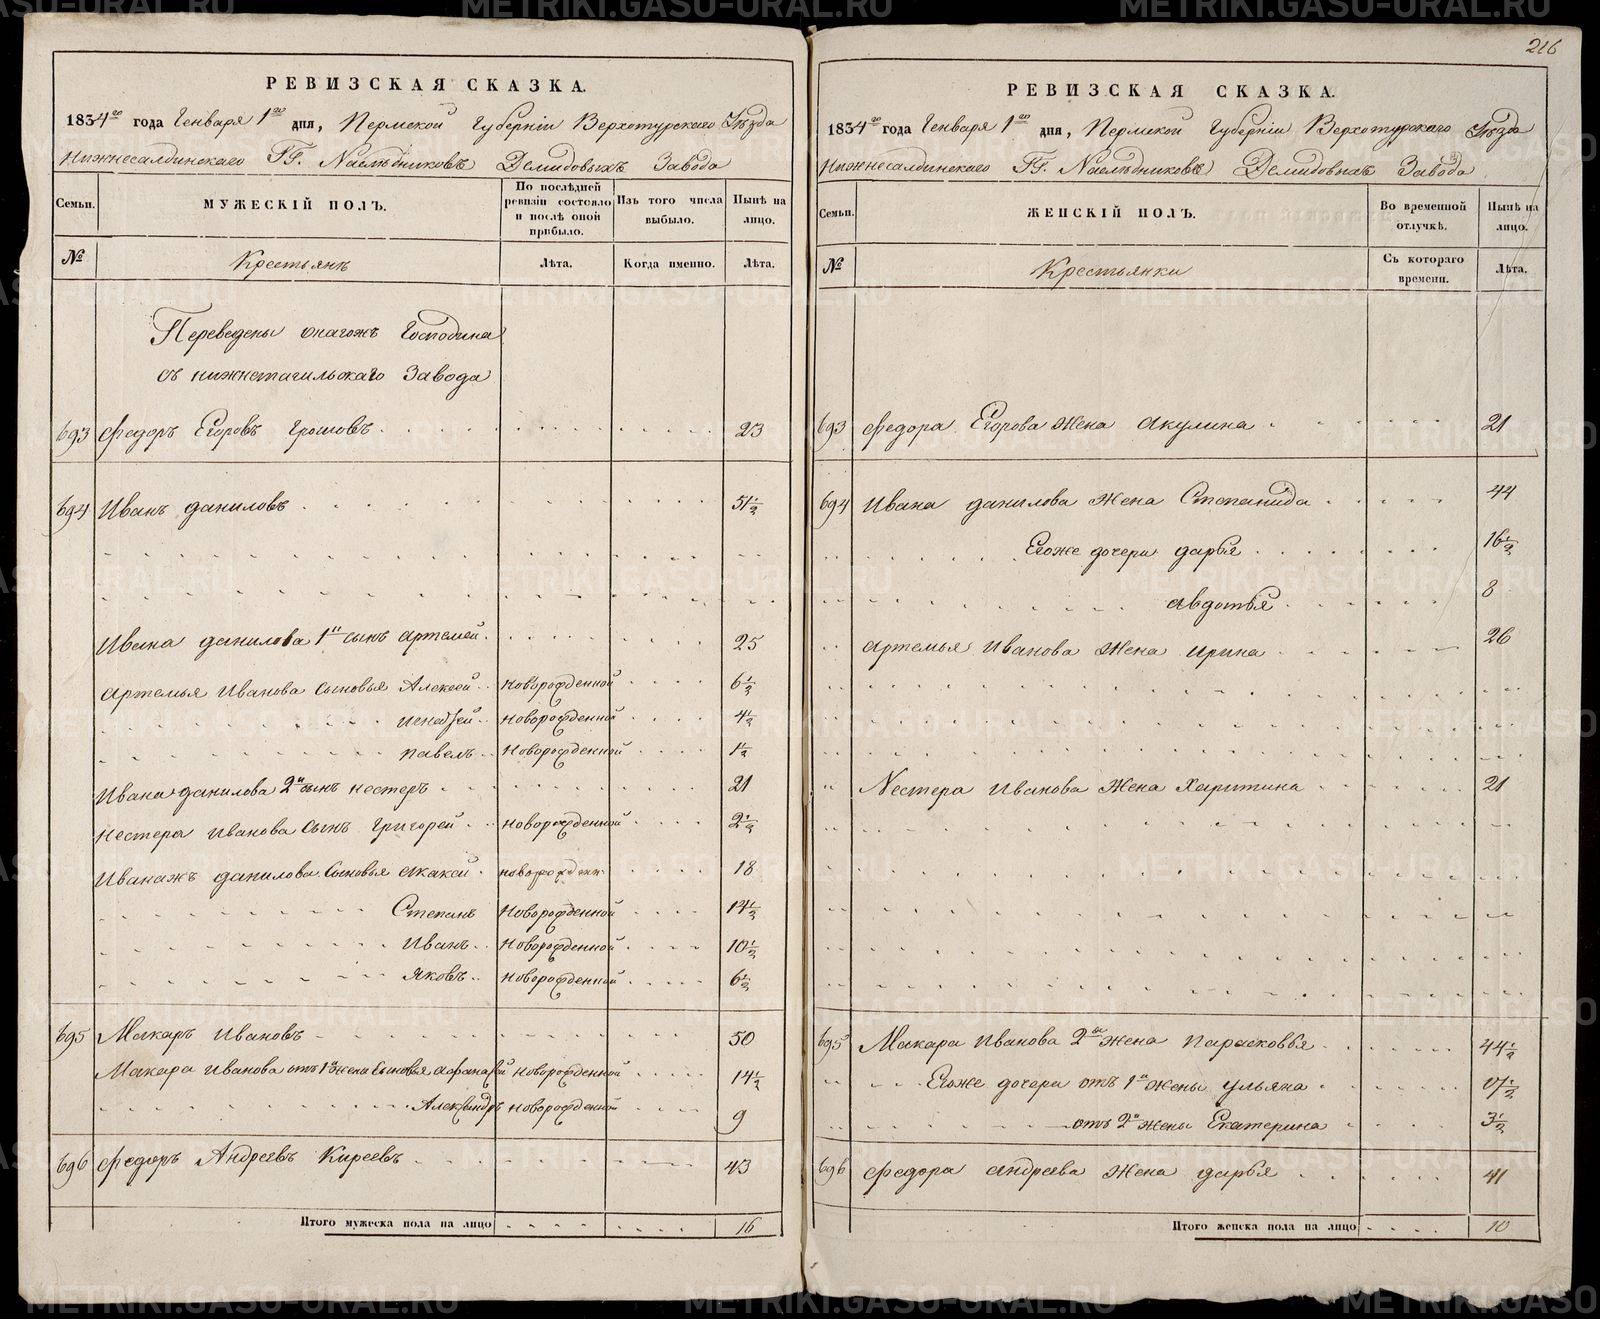 216
РЕВИЗСКАЯ СКАЗКА.
1834го года Генваря 1го дня, Пермской Губерніи Верхотурскаго Уѣзда
Нижнесалдинскаго ГГ. Наслѣдниковъ Демидовыхъ Завода
Семьи.
МУЖЕСКІЙ ПОЛЪ.
По послѣдней ревизіи состояло и послѣ оной прибыло.
Изъ того числа выбыло.
Нынѣ на лицо.
№
Крестьянъ
Лѣта.
Когда именно.
Лѣта.
Переведены онагожъ Господина
съ нижнетагильскаго Завода
693 Федоръ Егоровъ 23
694 Иванъ даниловъ 51½
Ивана данилова 1й сынъ артемей 25
артемья Иванова сыновья Алексей новорожденной 6½
новорожденной 4½
павелъ Новорожденной 1½
Ивана данилова 2й сынъ нестеръ 21
нестера Иванова сынъ Григорей новорожденной 2½
Иванажъ данилова сыновья акакей новорожден 18
Степанъ Новорожденной 14½
Иванъ Новорожденной 10½
Яковъ Новорожденной 6½
695 Макаръ Ивановъ 50
Макара Иванова отъ 1й жены сыновья афанасей новорожденной 14½
Александръ новорожденной 9
696 Федоръ Андреевъ Киреевъ 43
Итого мужеска пола на лицо 16
РЕВИЗСКАЯ СКАЗКА.
1834го года Генваря 1го дня, Пермской Губерніи Верхотурскаго Уѣзда
Нижнесалдинскаго ГГ. Наслѣдниковъ Демидовыхъ Завода
Семьи.
ЖЕНСКІЙ ПОЛЪ.
Во временной отлучкѣ.
Нынѣ на лицо.
№
Крестьянки
Съ котораго времени.
Лѣта.
693 Федора Егорова жена акулина 21
694 Ивана данилова жена Степанида 44
Егоже дочери дарья 16½
авдотья 8
артемья Иванова жена ирина 26
Нестера Иванова жена Харитина 21
695 Макара Иванова 2я жена парасковья 44½
Егоже дочери отъ 1й жены ульяна
отъ 2й жены Екатерина 3½
696 Федора андреева жена дарья 41
Итого женска пола на лицо 10
METRIKI.GASU-URAL.RU